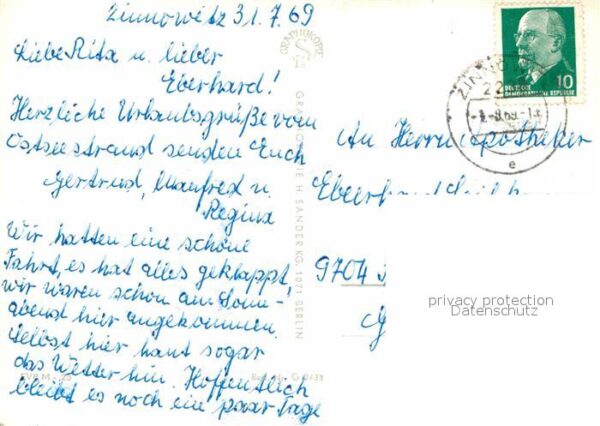 Zinnowitz 31.7.69
Liebe Rita u. lieber
Eberhard!
Herzliche Urlaubsgrüße vom
Ostseestrand senden Euch
Gertrud, Manfred u.
Regina
Wir hatten eine schöne
Fahrt, es hat alles geklappt,
wir waren schon am Sonn-
abend hier angekommen.
Selbst hier haut sogar
das Wetter hin. Hoffentlich
bleibt es noch ein paar Tage
GRAPHOKOPIE H. SANDER KG, 1071 BERLIN
DEUTSCHE
DEMOKRATISCHE REPUBLIK
10
e
An Herrn Apotheker
Eberhard
9704
privacy protection
Datenschutz